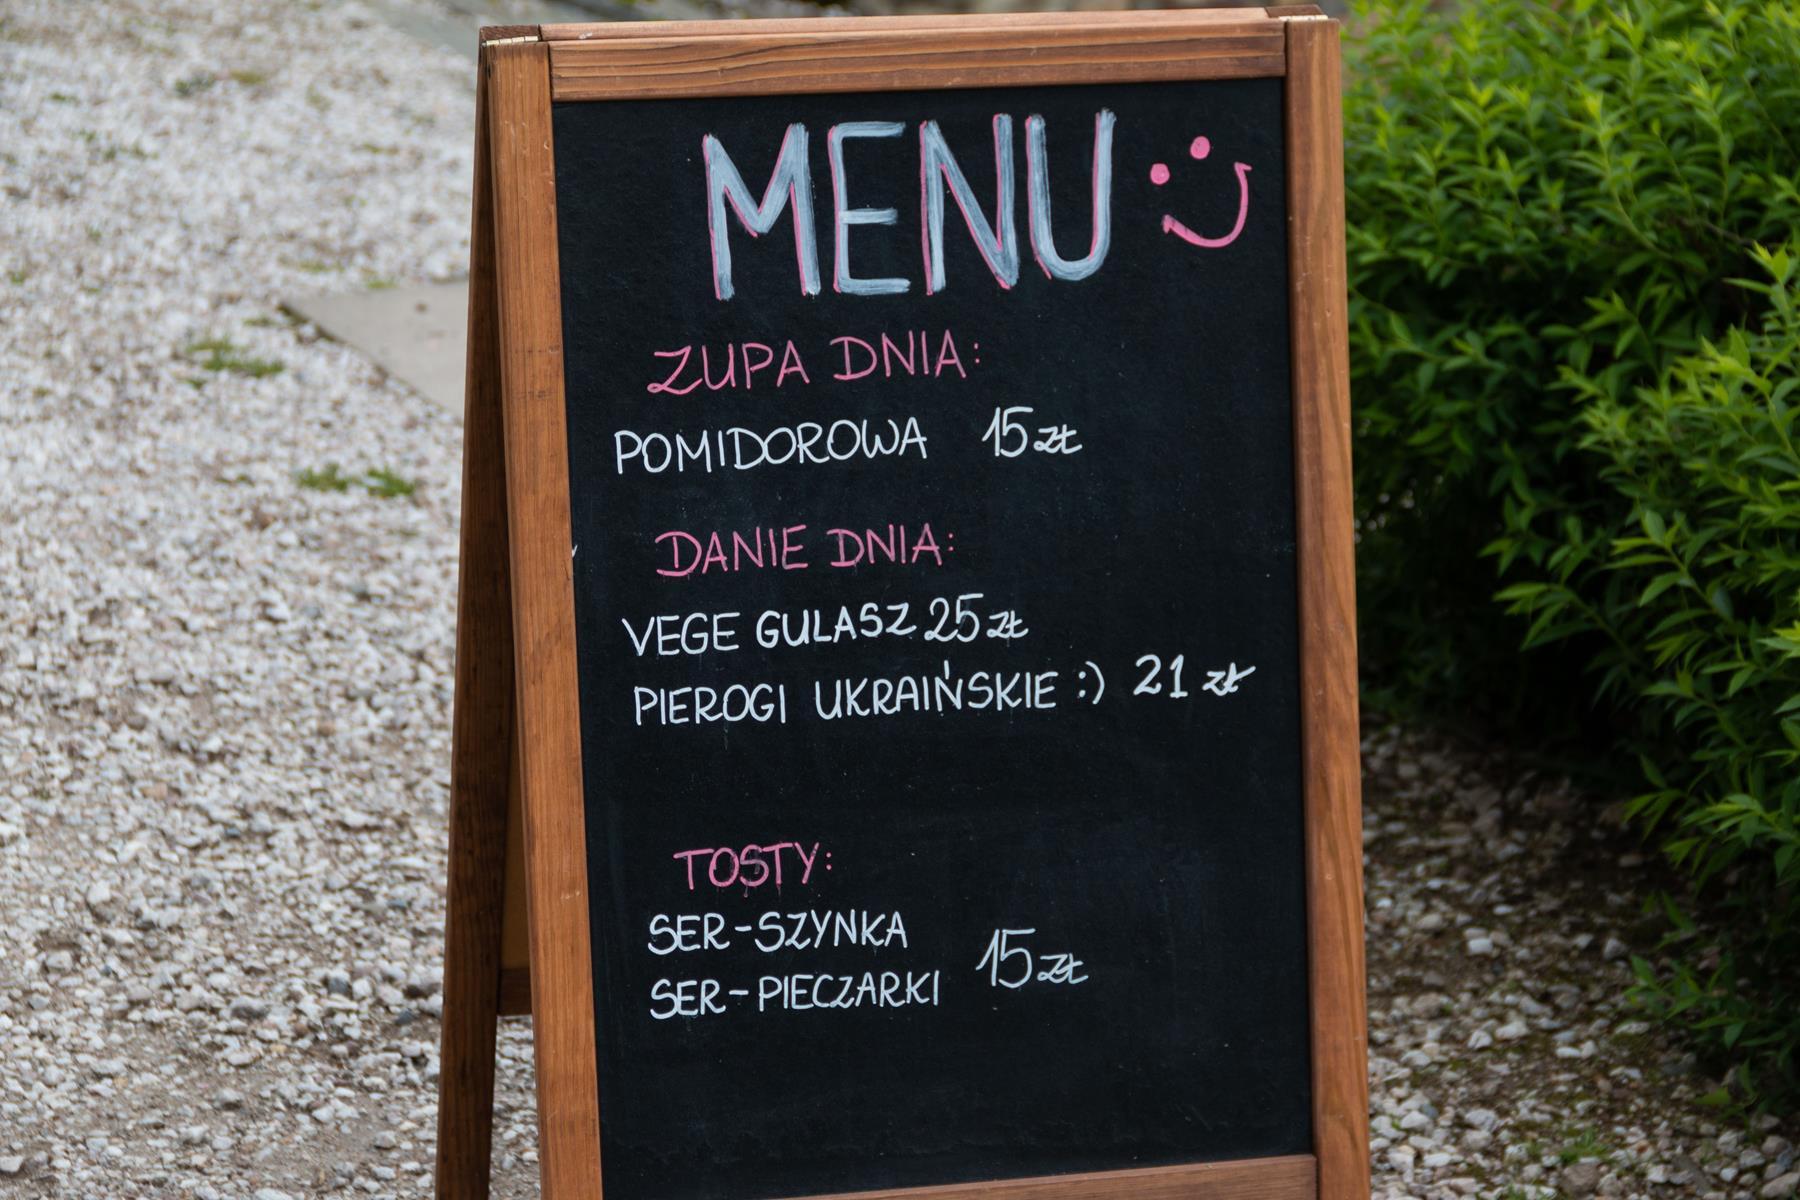 MENU
ZUPA DNIA:
POMIDOROWA 15 zł
DANIE DNIA:
VEGE GULASZ 25 zł
PIEROGI UKRAIŃSKIE :) 21 zł
TOSTY:
SER-SZYNKA
15 zł
SER-PIECZARKI